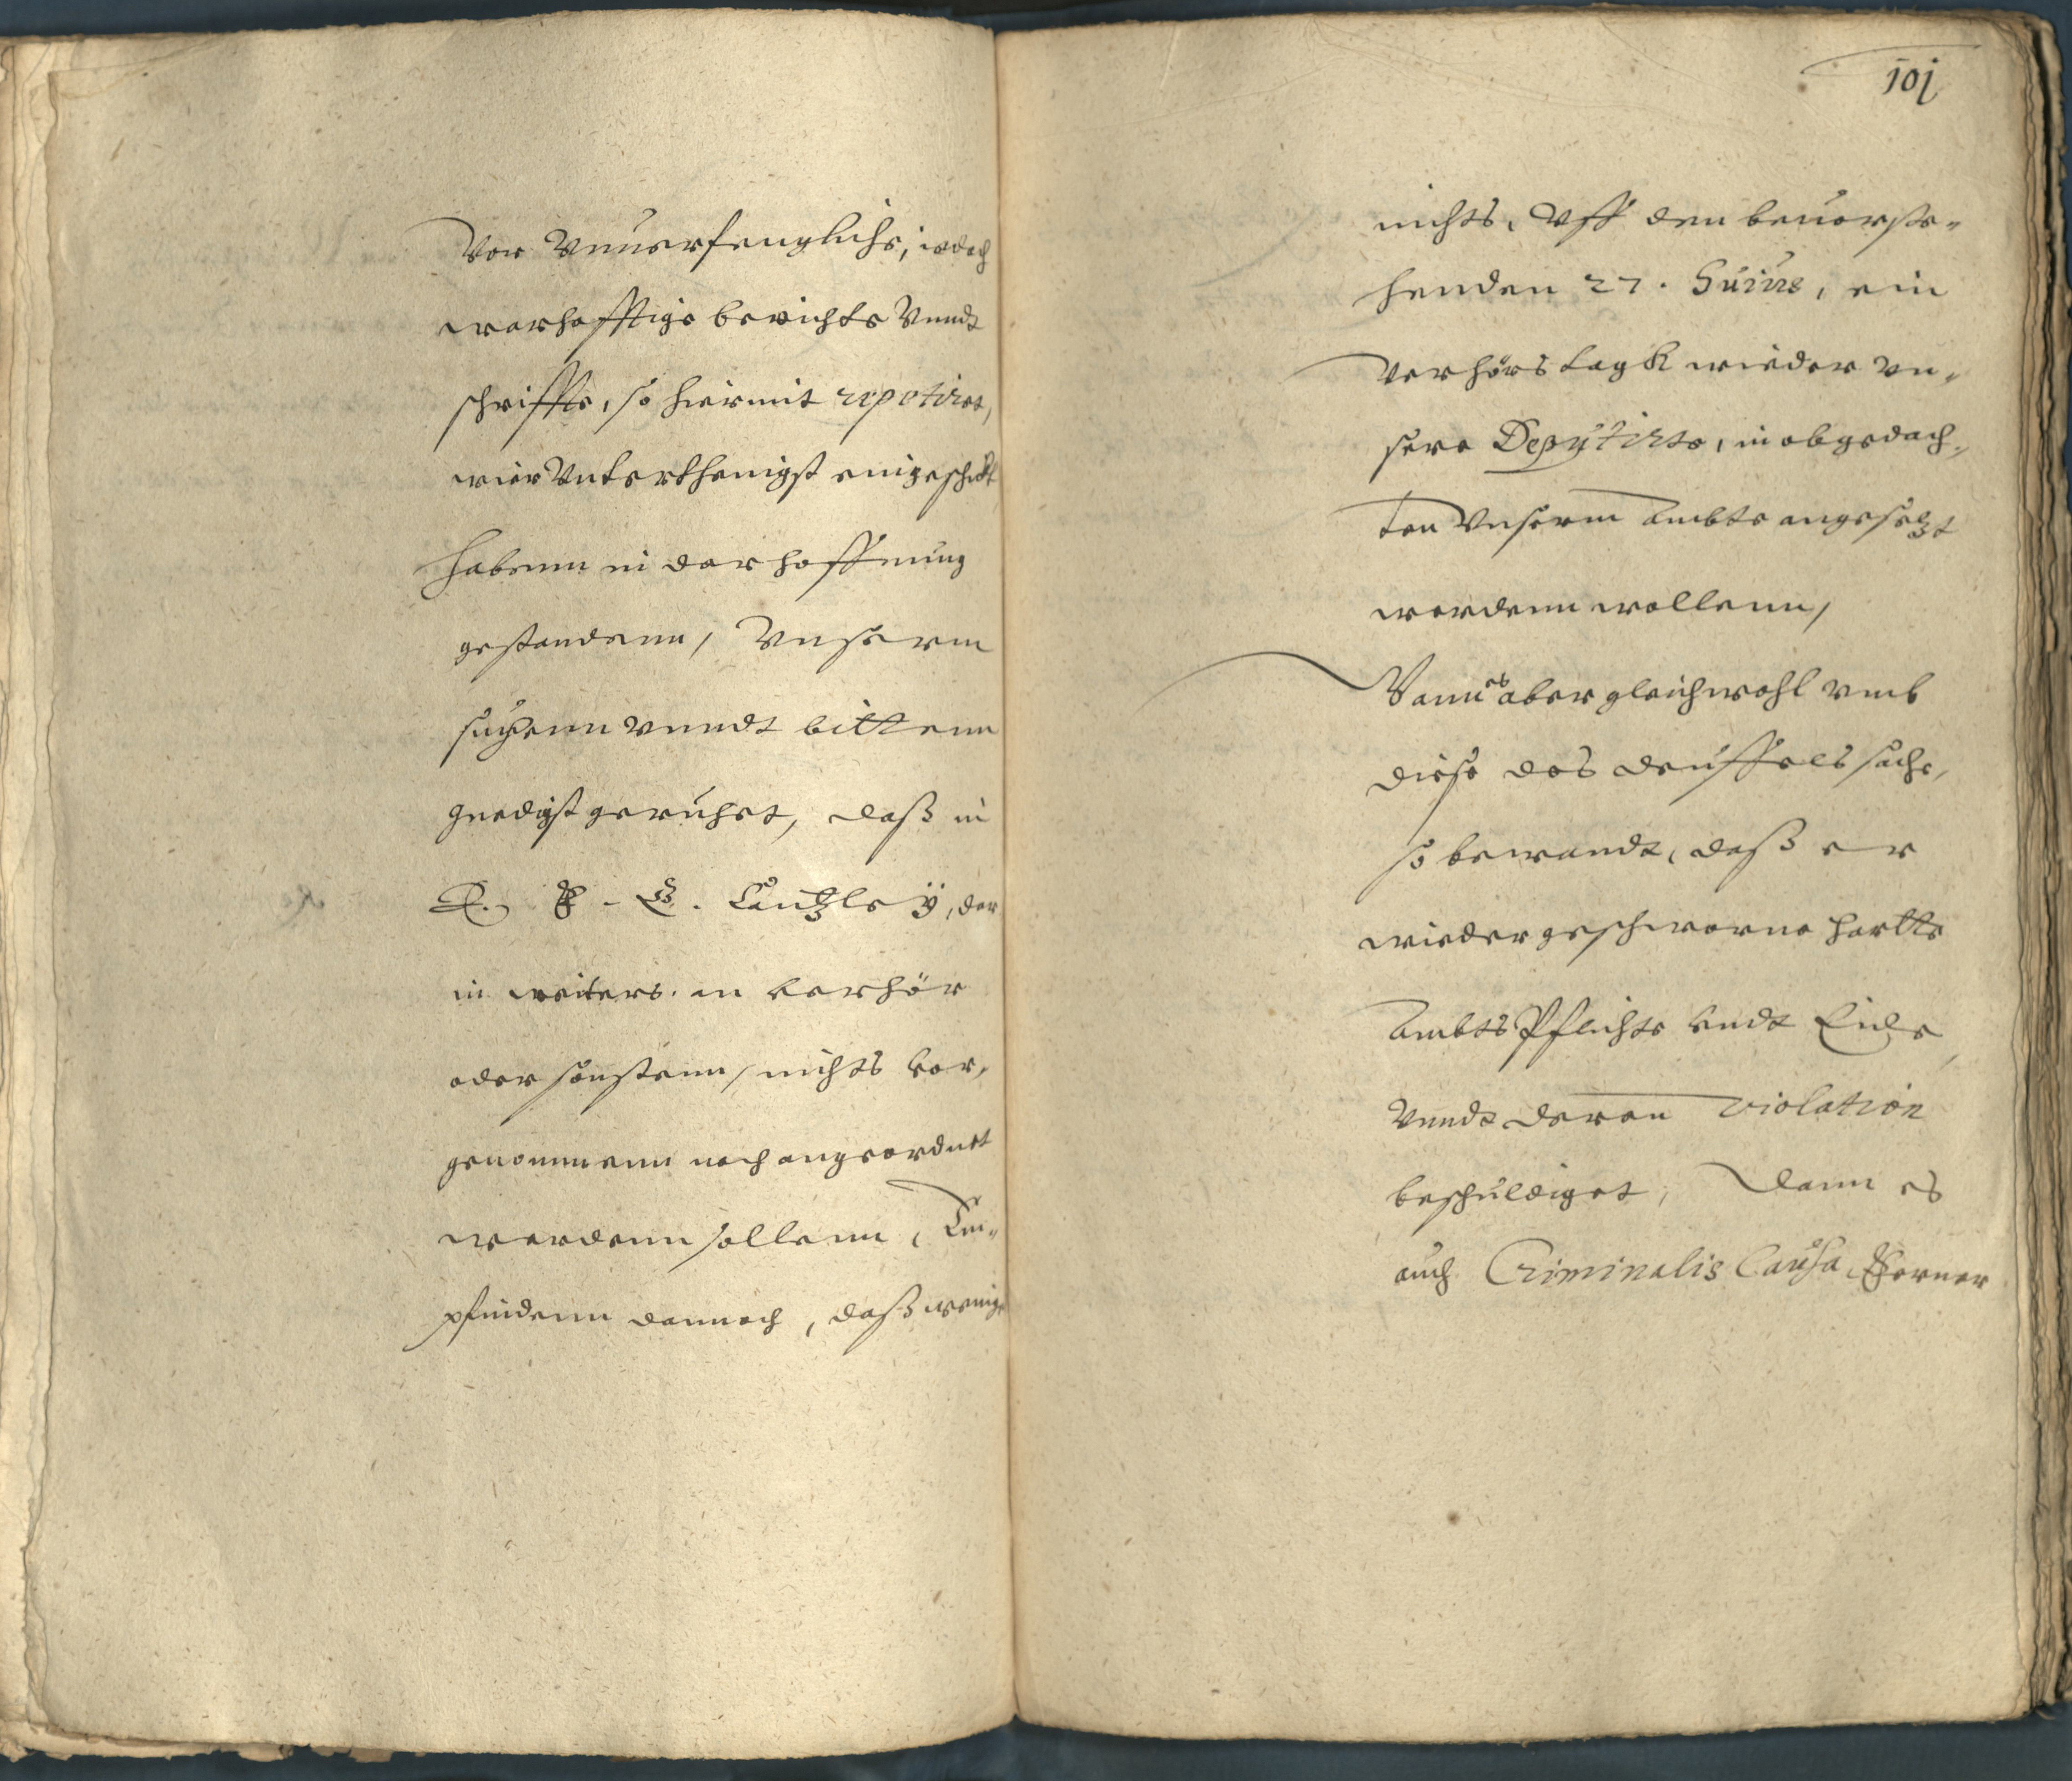 Vor Vnuerfenglichs, iedoch
warhafftige berichte Vnndt
schriffte, so hiermit repetiret,
wier Vnterthenigst eingeschickt
habenn in der hoffnung
gestandenn, Vnserm
suchenn vnndt bittenn
gnedigst geruhet, daß in
E. F. G. Cantzleÿ, der
in weiters. an verhör
oder sonstenn, nichts vor,
genommenn noch angeordnet
werdenn sollenn, Em-
pfindenn dennoch, daß wenig
101
nichts, Vff den beuorste-
henden 27. Huius, ein
Verhörs tagk wieder vn-
sere Deputirte, in obgedach-
ten Vnserm Ambte angesetzt
werdenn wollenn,
Wann es aber gleichwohl vmb
diese des deuffels sache,
so bewandt, daß er
wieder geschworne harte
Ambts Pflichte vndt Eide
Vnndt deren violation
beschuldiget, dann es
auch Criminalis Causa, Ferner